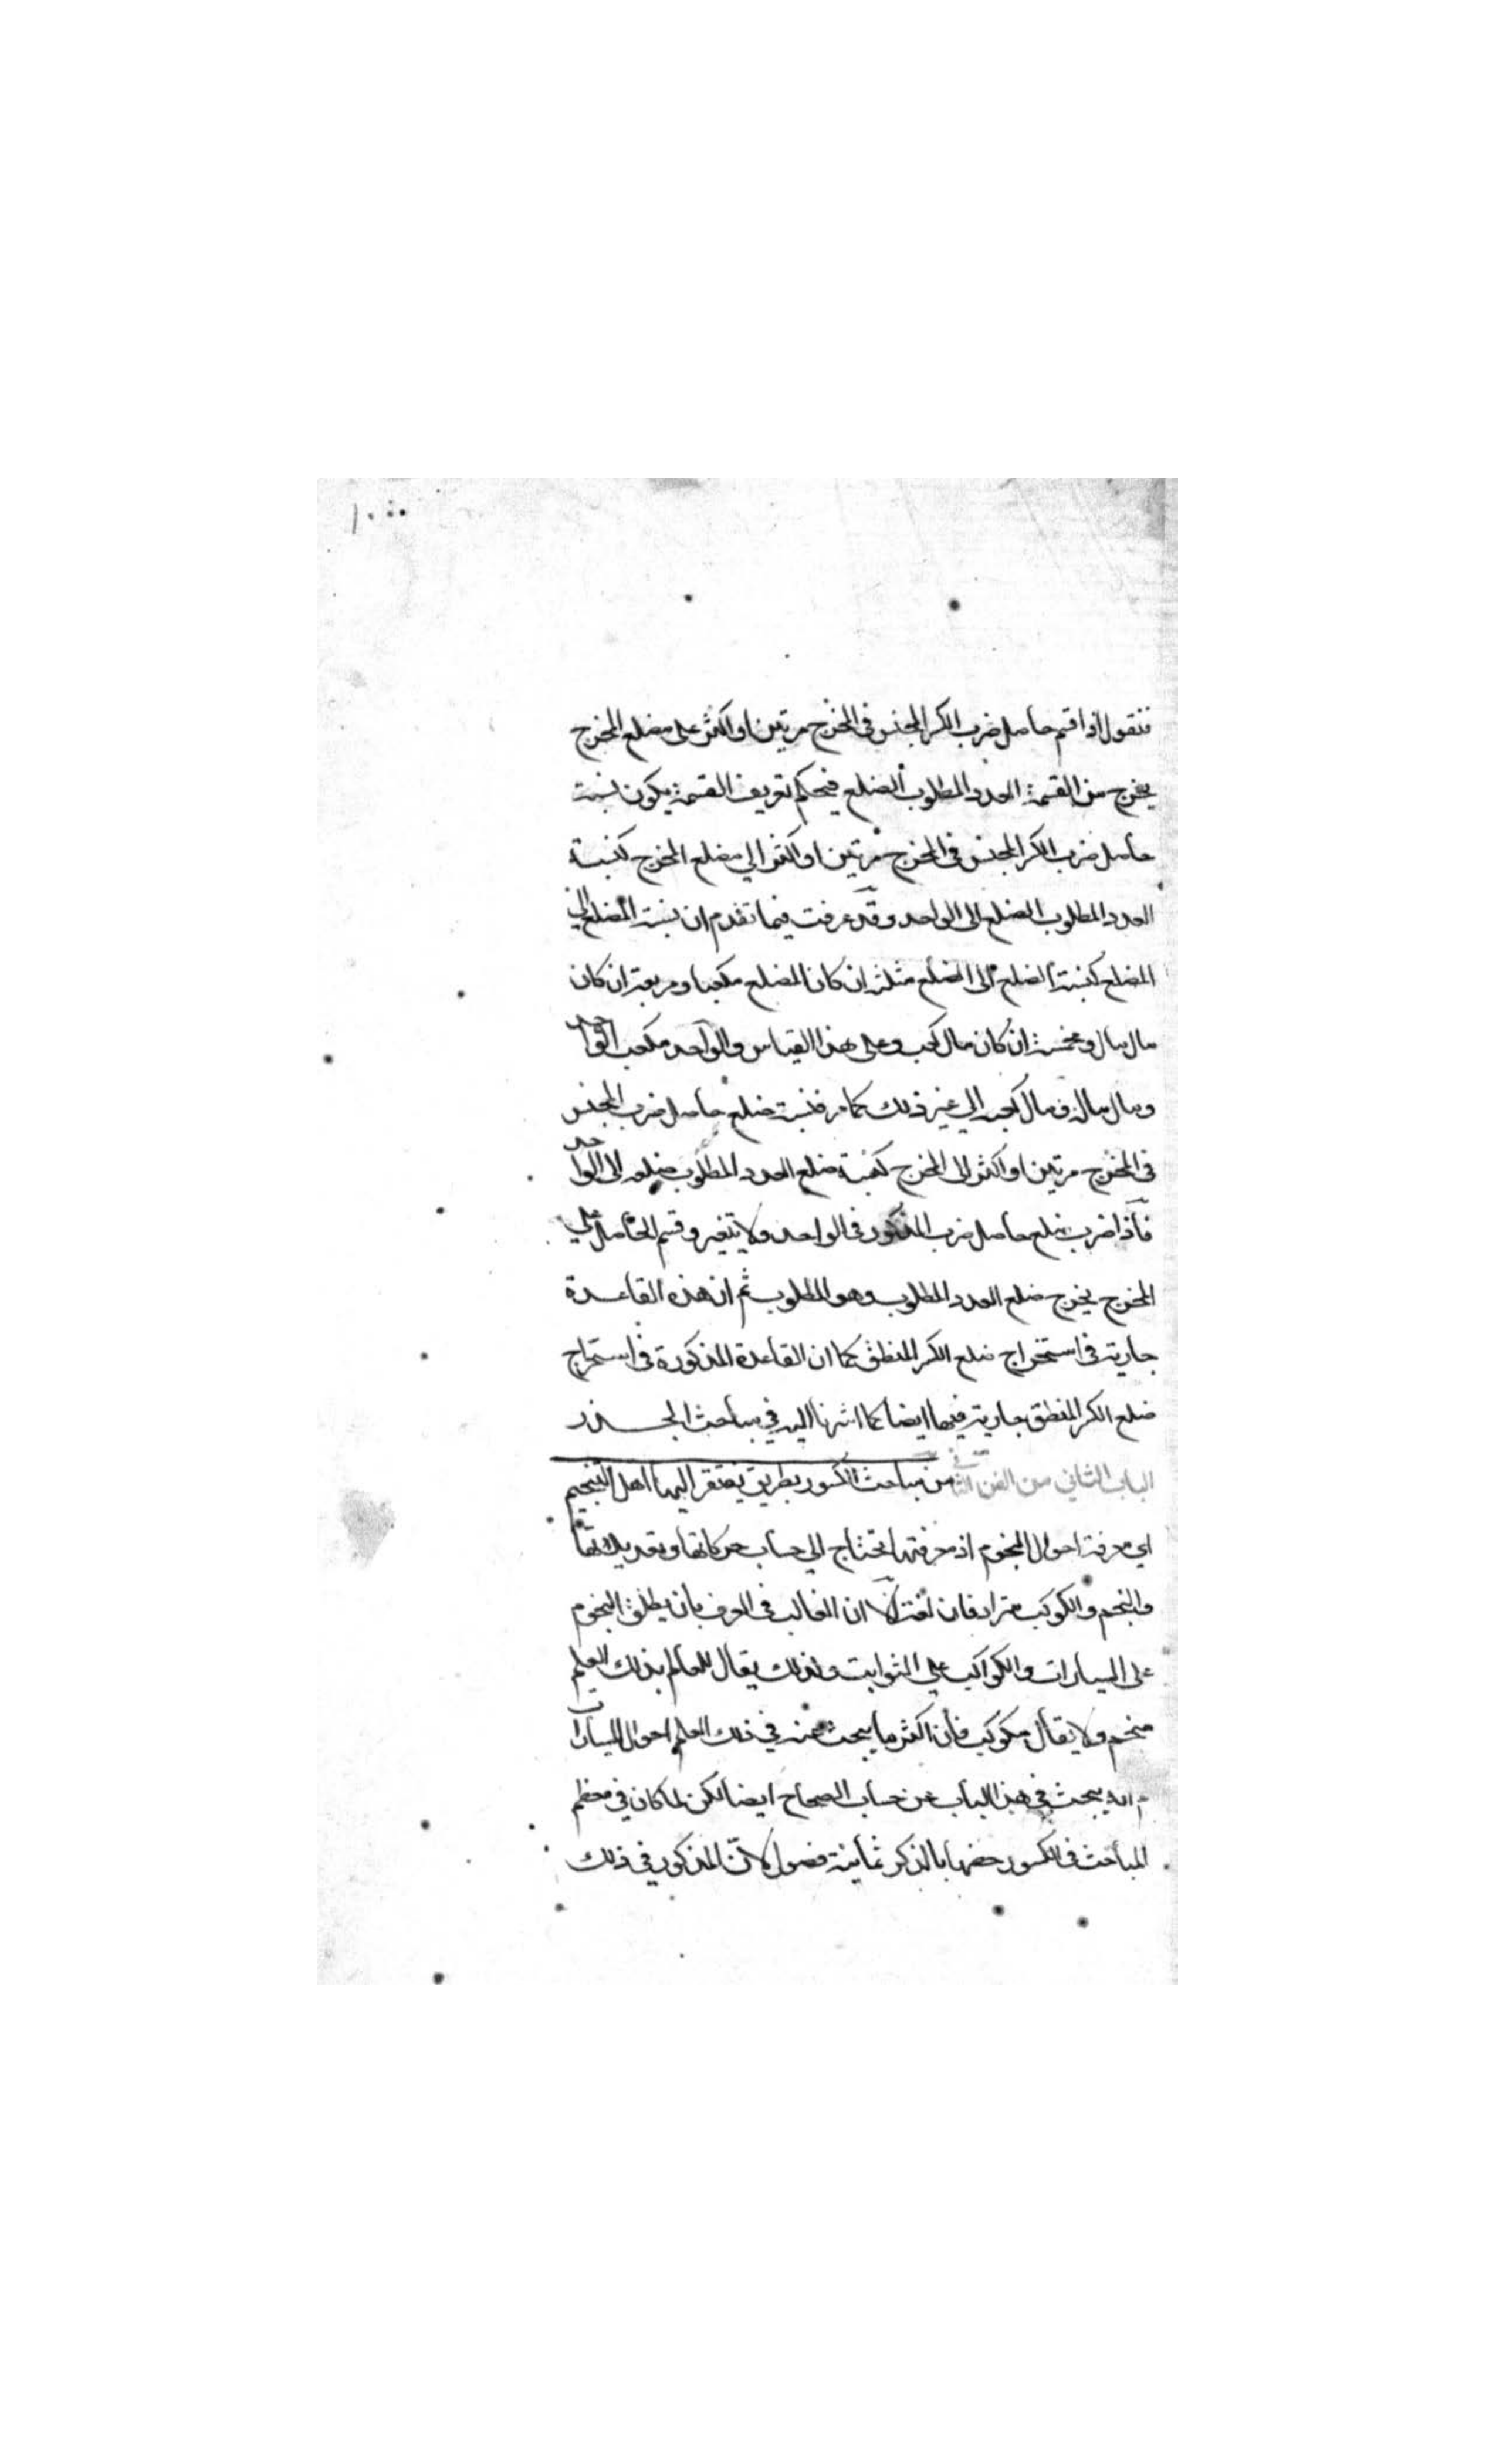 فنقول اذا قسم حاصل ضرب الكسر المجنس فى المخرج مرتين او اكثر على مضلع المخرج
يخرج من القسمة العدد المطلوب الضلع فبحكم تعريف القسمة يكون نسبة
حاصل ضرب الكسر المجنس فى المخرج مرتين او اكثر الي مضلع المخرج كنسبة
العدد المطلوب الضلع الى الواحد وقد عرفت فيما تقدم ان نسبة المضلع الي
المضلع كنسبة الضلع الى الضلع مثلثة ان كان المضلع مكعبا ومربعة ان كان
مال مال ومخمسة ان كان مال كعب وعلى هذا القياس والواحد مكعب الواحد
ومال مال ومال كعب الي غير ذلك كما مر فنسبة ضلع حاصل ضرب المجنس
فى المخرج مرتين او اكثر الى المخرج كنسبة ضلع العدد المطلوب ضلعه الى الواحد
فاذا ضرب ضلع حاصل ضرب المذكور فى الواحد ولا يتغير وقسم الحاصل علي
المخرج يخرج ضلع العدد المطلوب وهو المطلوب ثم ان هذه القاعدة
جارية فى استخراج ضلع الكسر المنطق كما ان القاعدة المذكورة فى استخراج
ضلع الكسر المنطق جارية فيها ايضا كما اشرنا اليه في مباحث الجذر
الباب الثاني من الفن الثانى من مباحث الكسور بطريق يفتقر اليها اهل التنجيم
اي معرفة احوال النجوم اذ معرفتها تحتاج الي حساب حركاتها وتعديلاتها
والنجم والكوكب مترادفان لغة الا ان الغالب فى العرف بان يطلق النجوم
على السيارات والكواكب علي الثوابت ولذلك يقال للعالم بذلك العلم
منجم ولا يقال مكوكب فان اكثر ما يبحث عنه في ذلك العلم احوال السيارات
انه يبحث في هذا الباب عن حساب الصحاح ايضا لكن لما كان في معظم
المباحث فى الكسور خصها بالذكر ثمانية فصول لان المذكور في ذلك